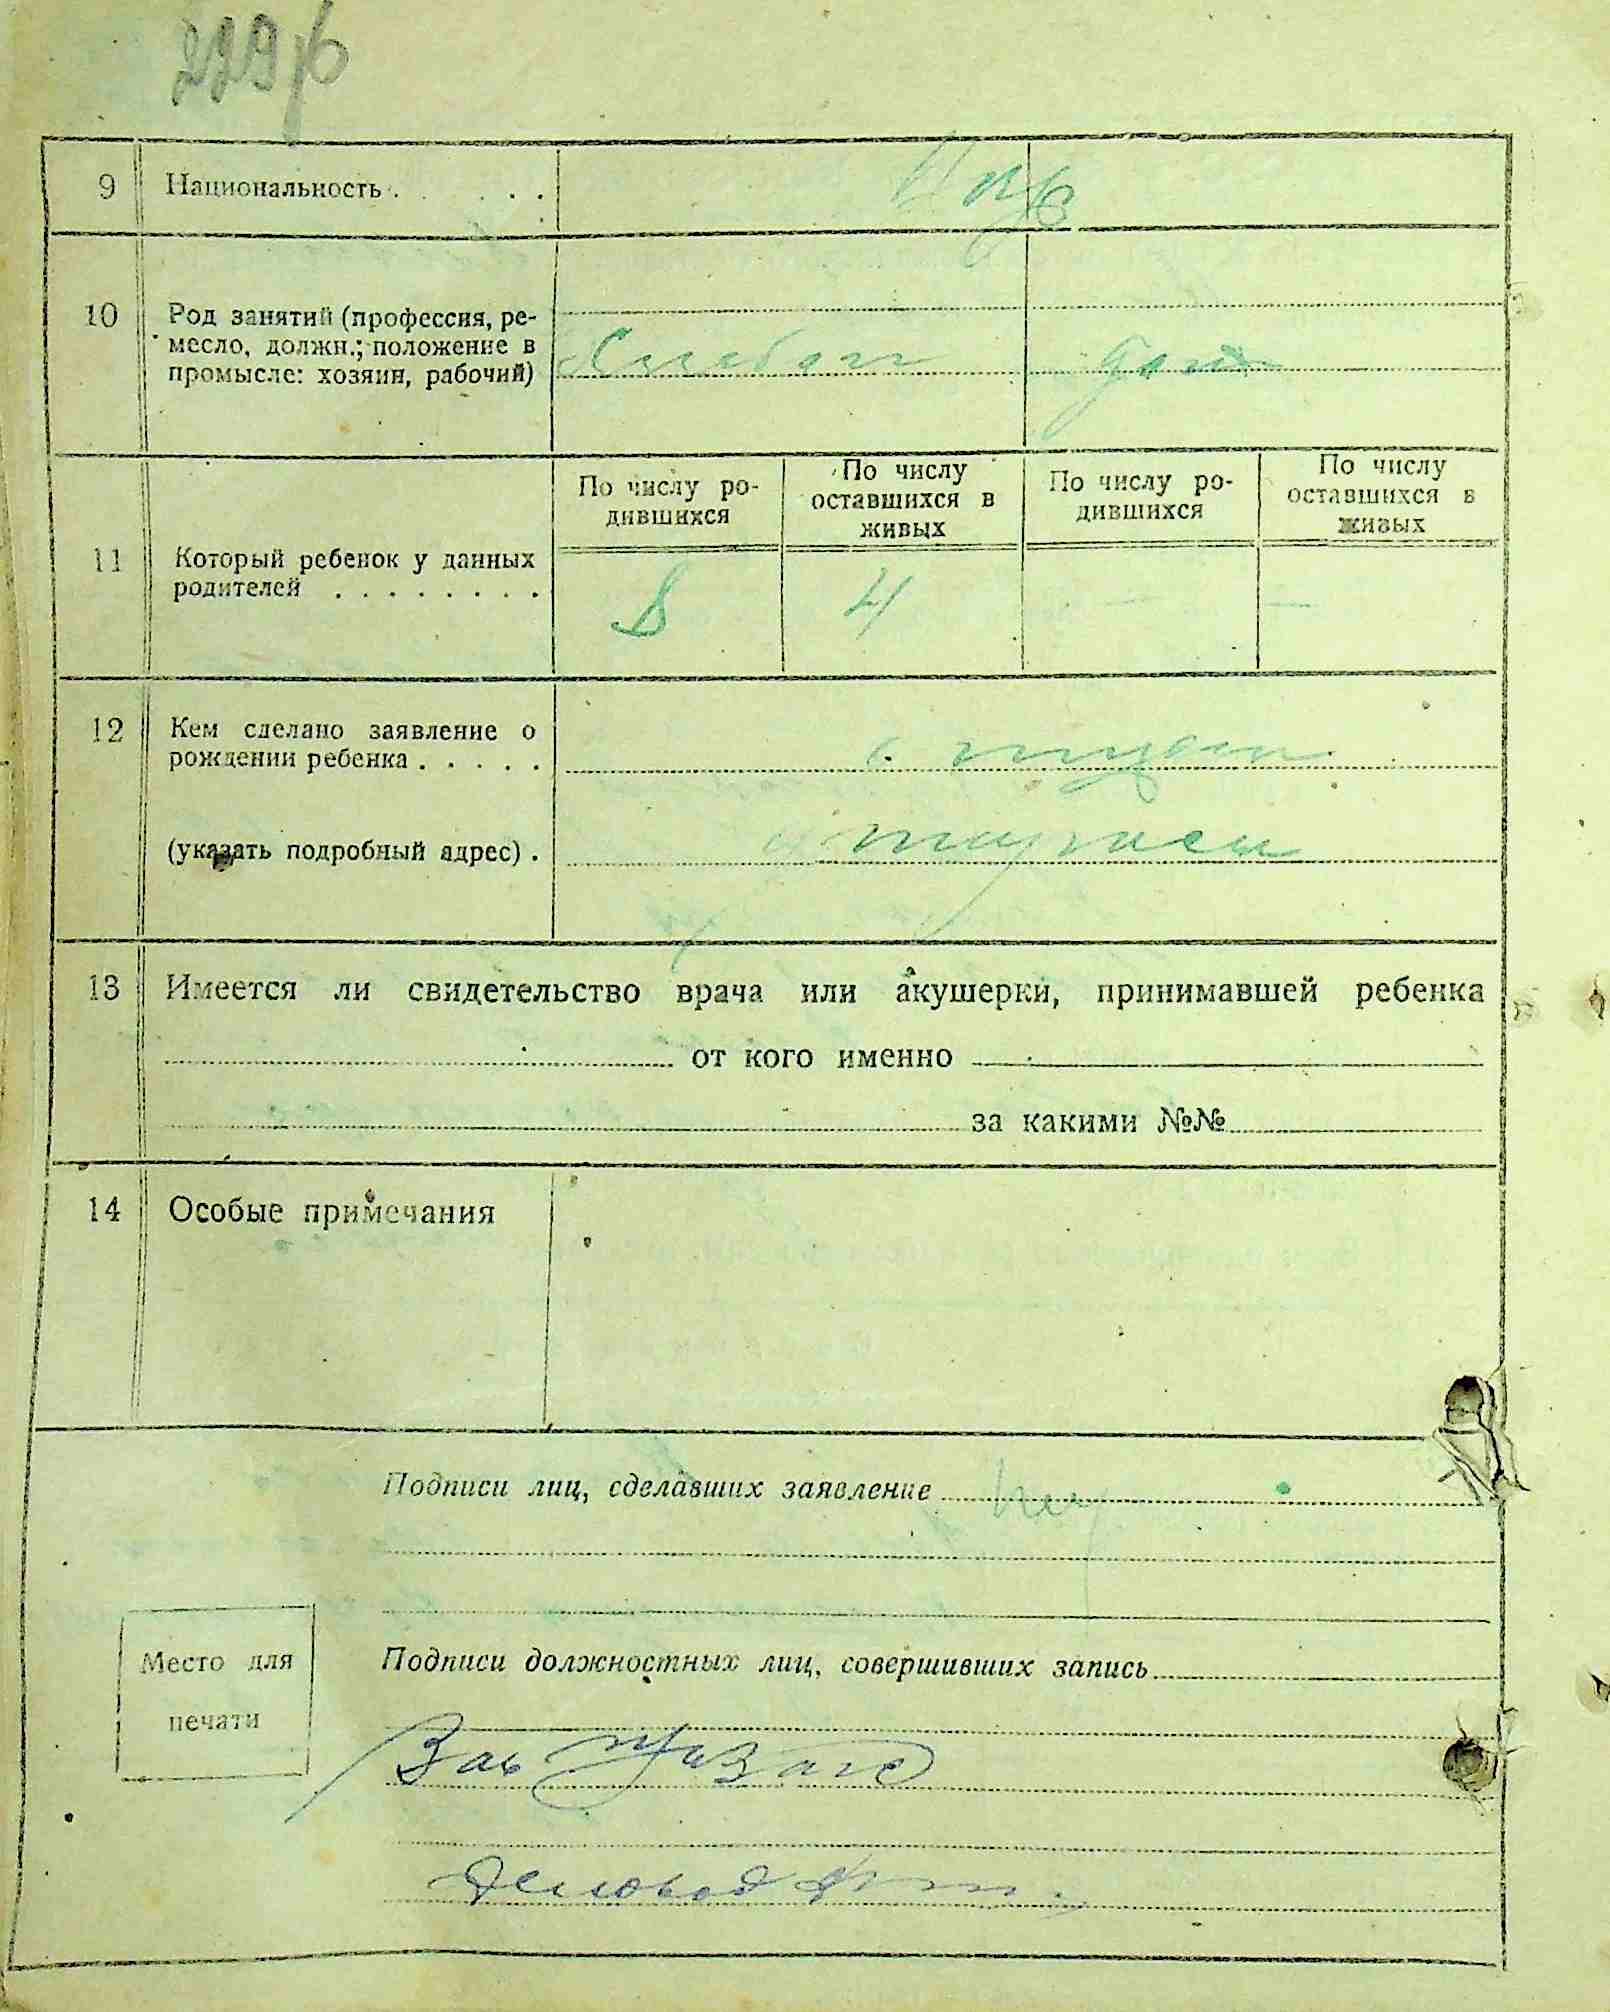 9 Национальность . . . . .
10 Род занятий (профессия, ре-
месло, должн.; положение в
промысле: хозяин, рабочий)
Хлебоп дом
По числу ро-
дившихся
По числу
оставшихся в
живых
По числу ро-
дившихся
По числу
оставшихся в
живых
11 Который ребенок у данных
родителей . . . . . . . .
4 — —
12 Кем сделано заявление о
рождении ребенка . . . . .
(указать подробный адрес) .
13 Имеется ли свидетельство врача или акушерки, принимавшей ребенка
от кого именно
за какими №№
14 Особые примечания
Подписи лиц, сделавших заявление
Место для
печати
Подписи должностных лиц, совершивших запись
Зав
Деловод